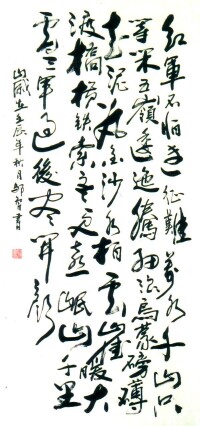 紅軍不怕遠征難萬水千山只
等闲五嶺逶迤騰細浪烏蒙磅礴
走泥丸金沙水拍雲崖暖大
渡橋橫鉄索寒更喜岷山千里
雪三軍過後盡開顏
壬辰年秋月
書